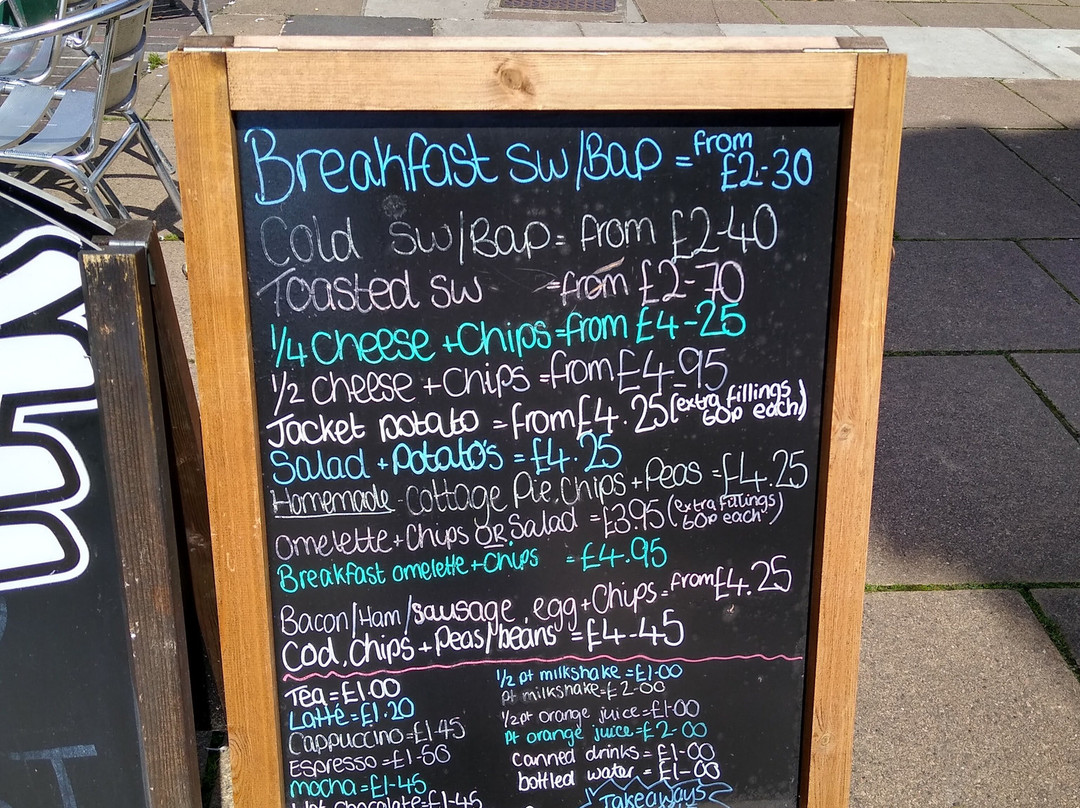 Breakfast sw/Bap = from £2-30
Cold sw/Bap = from £2-40
Toasted sw = from £2-70
1/4 Cheese + Chips = from £4-25
1/2 Cheese + Chips = from £4-95
Jacket potato = from £4.25 (extra fillings 60p each)
Salad + Potato's = £4.25
Homemade - cottage Pie, Chips + Peas = £4.25
omelette + Chips OR Salad = £3.95 (extra fillings 60p each)
Breakfast omelette + Chips = £4.95
Bacon/Ham/sausage, egg + Chips = from £4.25
Cod, chips + Peas/beans = £4-45
Tea = £1.00
Latté = £1.20
Cappuccino = £1.45
Espresso = £1-
mocha = £1-45
Hot chocolate = £1-45
1/2 pt milkshake = £1-00
pt milkshake = £2-00
1/2 pt orange juice = £1-00
pt orange juice = £2-00
canned drinks = £1-00
bottled water = £1-00
Takeaways